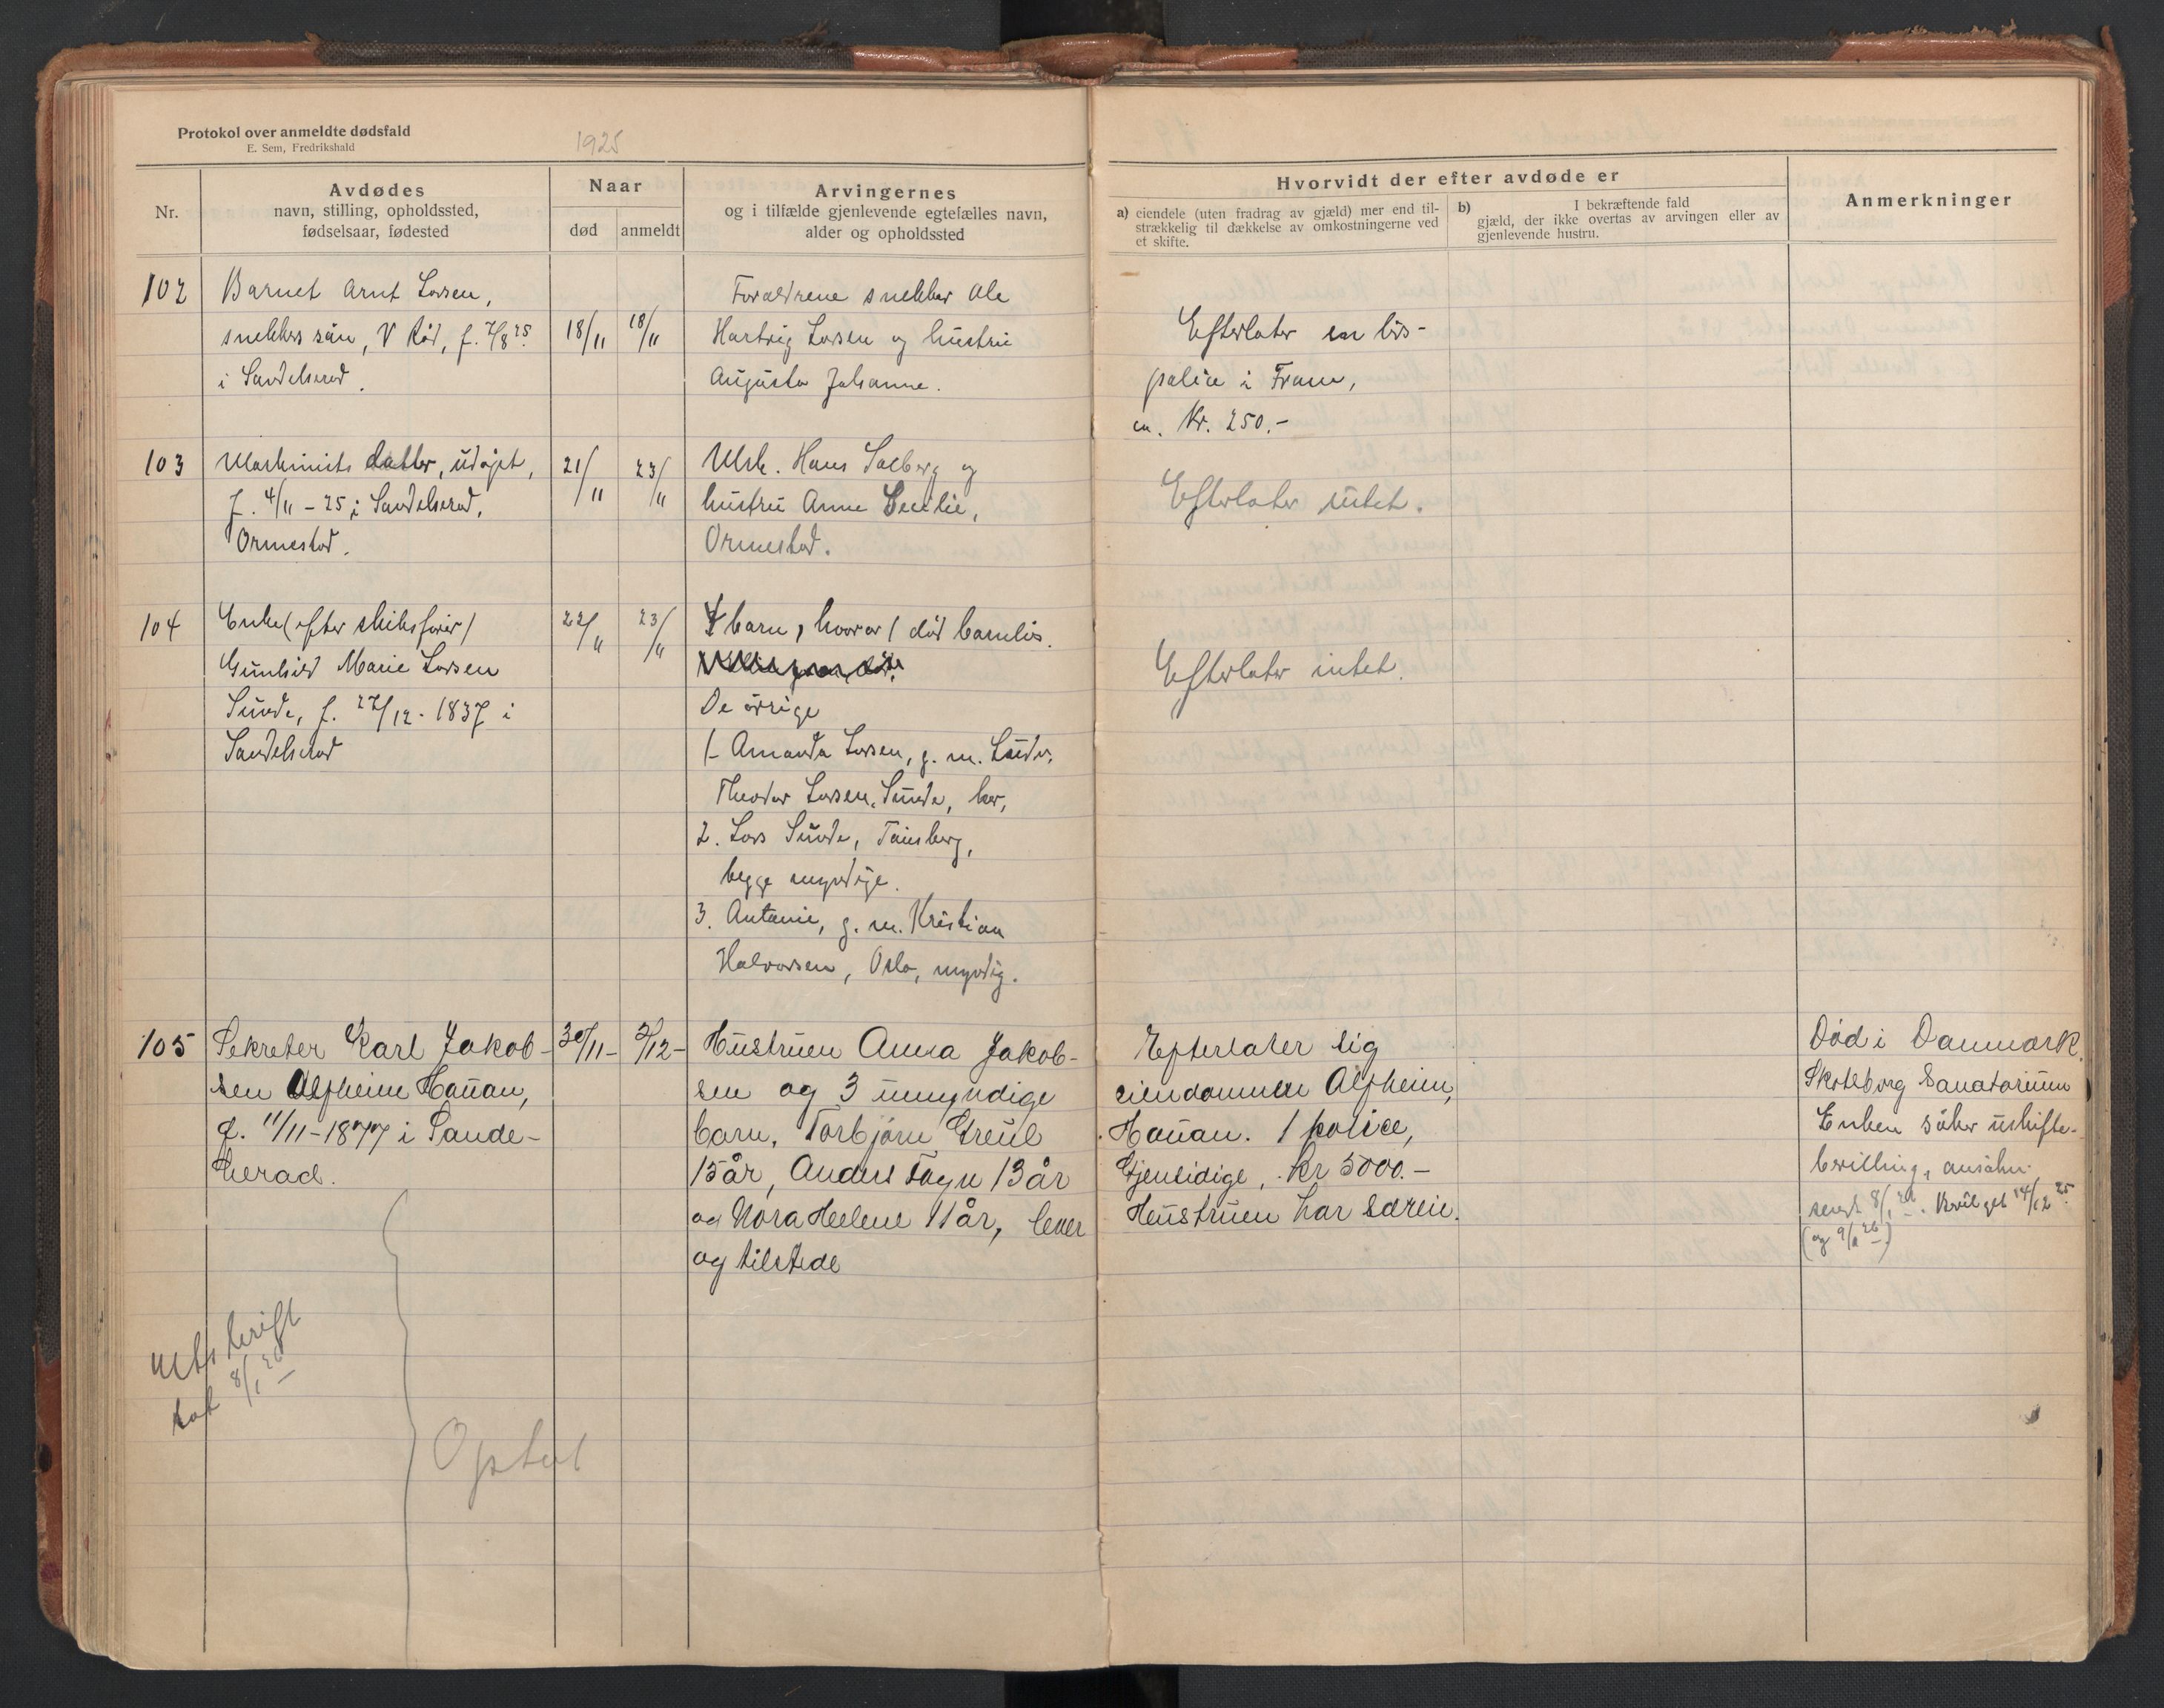 Protokol over anmeldte dødsfald
E. Sem, Fredrikshald
1925
Nr.
Avdødes
navn, stilling, opholdssted,
fødselsaar, fødested
Naar
død
anmeldt
Arvingernes
og i tilfælde gjenlevende egtefælles navn,
alder og opholdssted
Hvorvidt der efter avdøde er
a) eiendele (uten fradrag av gjæld) mer end til-
strækkelig til dækkelse av omkostningerne ved
et skifte.
b) I bekræftende fald
gjæld, der ikke overtas av arvingen eller av
gjenlevende hustru.
Anmerkninger
102
Barnet Arnt Larsen,
snekkers sön, V Röd, f. 7/8 25.
i Sandeherad.
18/11
18/11
Forældrene snekker Ole
Hartvig Larsen og hustru
Augusta Johanne.
Efterlater en livs-
police i Fram,
ca. Kr. 250.-
103
Maskinists datter, udöpt,
f. 4/11 - 25 i Sandeherad,
Ormestad.
21/11
23/11
Mask. Hans Solberg og
hustru Anne Cecilie,
Ormestad.
Efterlater intet.
104
Enke (efter skibsförer)
Gunhild Marie Larsen
Sunde, f. 27/12. 1837 i
Sandeherad
22/11
23/11
4 barn, hvorav 1 död barnlös.
De övrige
1- Amanda Larsen, g. m. Ludv.
Theodor Larsen, Sunde, her,
2. Lars Sunde, Tönsberg,
begge myndige.
3. Antonie, g. m. Kristian
Halvorsen, Oslo, myndig.
Efterlater intet.
105
Sekretær Karl Jakob-
sen Alfheim Haüan,
f. 11/11-1877 i Sande-
herad.
30/11-
5/12-
Hustruen Anna Jakob-
sen og 3 umyndige
barn, Torbjörn Greul
15 år, Anders Fagn 13 år
og Nora Helene 11 år, lever
og tilstede
Efterlater sig
eiendommen Alfheim,
Haüan. 1 police,
Gjensidige, kr 5000.-
Hustruen har særeie.
Död i Danmark.
Skodsborg Sanatorium
Enken söker uskifte-
bevilling, ansökn.
sendt 8/1 26. Kvülget 14/12 25.
(og 9/1 26)
Utskrift
tat 8/1 26
Opstat